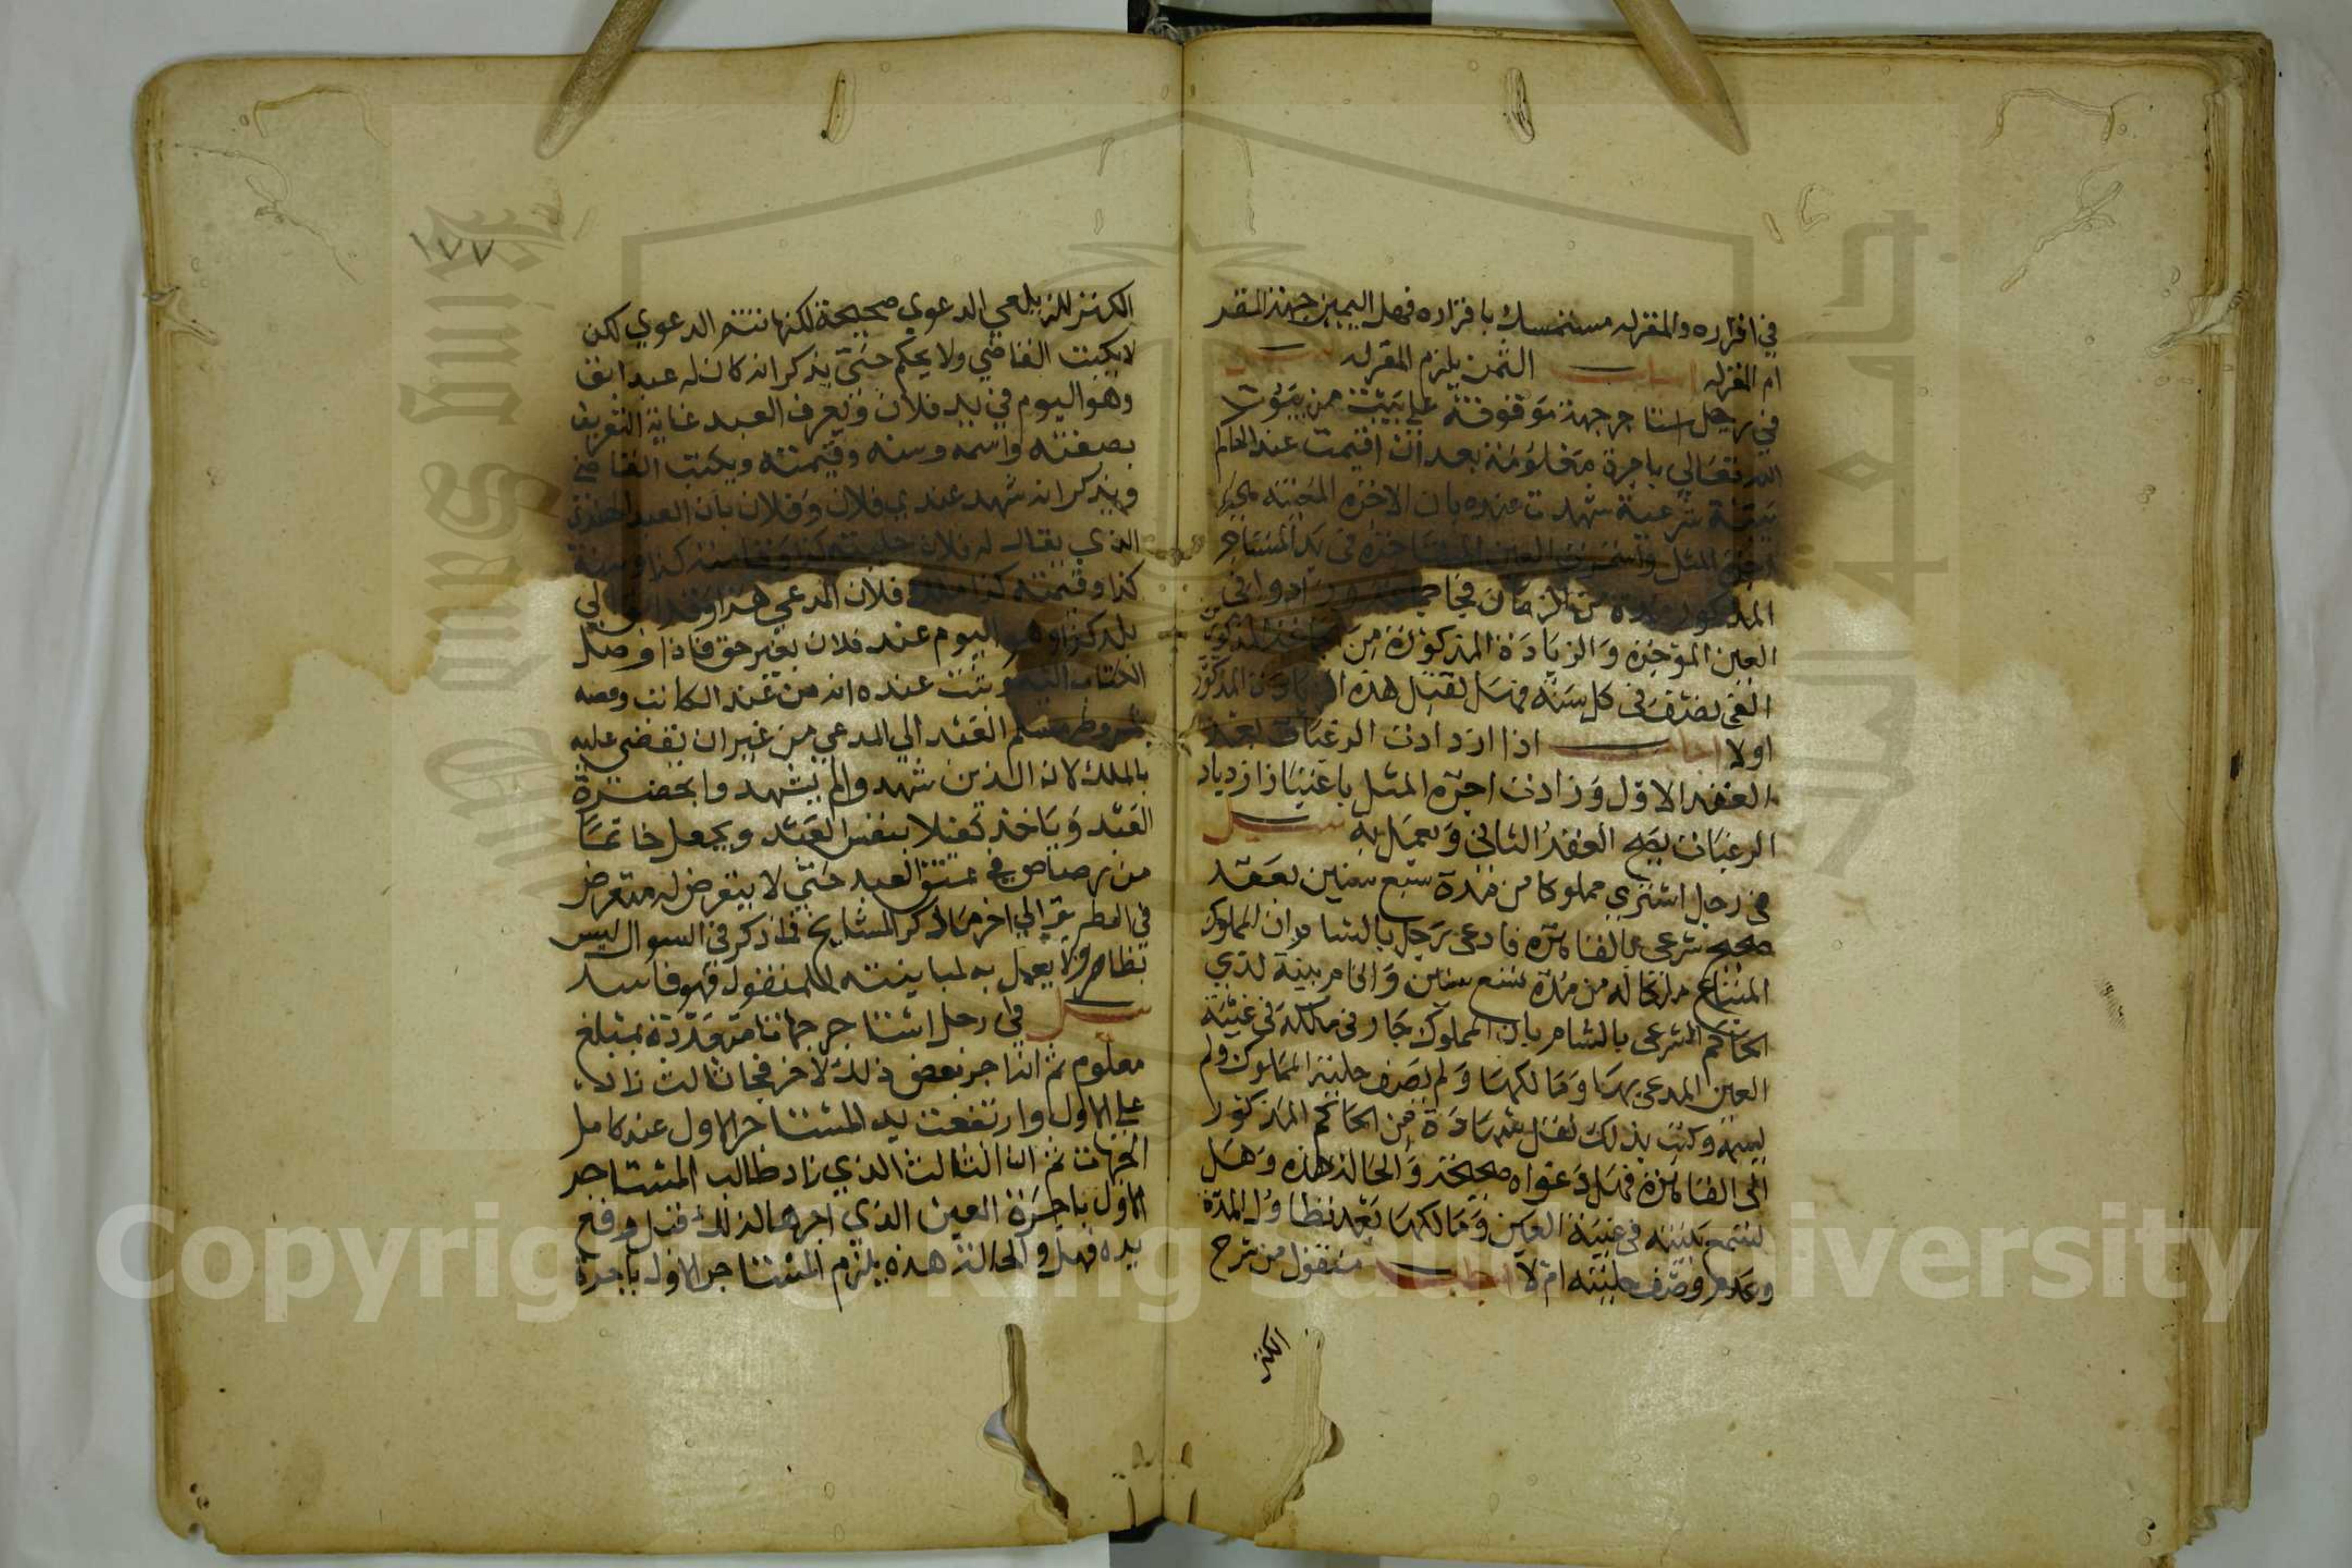 في اقراره والمقر له مستمسك باقراره فهل اليمين جهة المقر
ام المقر له اجاب الثمن يلزم المقر له سيل
في رجل استاجر جهة موقوفة على بيت من بيوت
الله تعالى باجرة معلومة بعد ان اقيمت عند الحاكم
بينة شرعية شهدت عنده بان الاجرة المعينة
اجرة المثل العين في يد المستاجر
المذكور مدة من الزمان وزادوا في
العين المؤجرة والزيادة المذكورة من
في كل سنة فهل تقبل هذه المذكور
اولا اجاب اذا ازدادت الرغبات بعد
العقد الاول وزادت اجرة المثل باعتبار ازدياد
الرغبات يصح العقد الثاني ويعمل به سيل
في رجل اشترى مملوكا من مدة سبع سنين بعقد
صحيح شرعي بالقاهرة فادعى رجل بالشام ان المملوك
المبتاع ملكا له من مدة تسع سنين واقام بينة لدي
الحاكم الشرعي بالشام بان المملوك جار في ملكه في غيبة
العين المدعى بها ومالكها ولم يصف حلية المملوك ولم
وكتب بذلك نقل شهادة من الحاكم المذكور
الى القاهرة فهل دعواه صحيحة والحالة هذه وهل
تسمع بينته في غيبة العين ومالكها بعد تطاول المدة
وعدم وصف حليته ام لا اجاب منقول من شرح
الكنز
١٧٧
الكنز للزيلعي الدعوي صحيحة لكنها تتم الدعوي لكن
لا يكتب القاضي ولا يحكم حتى يذكر انه كان له عبد ابق
وهو اليوم في يد فلان ويعرف العبد غاية التعريف
بصفته واسمه وسنه وقيمته ويكتب القاضي
ويذكر انه شهد عندي فلان وفلان بان العبد
الذي يقال له فلان حليته كذا وقامته كذا وسنه
كذا وقيمته كذا ملك فلان المدعي هذا وقد ابق الي
بلد كذا وهو اليوم عند فلان بغير حق فاذا وصل
الكتاب اليه وثبت عنده انه من عند الكاتب وفضه
بشروطه سلم العبد الي المدعي من غير ان يقضي عليه
بالملك لان الذين شهدوا لم يشهدوا بحضرة
العبد وياخذ كفيلا بنفس العبد ويجعل خاتما
من رصاص في عنق العبد حتى لا يتعرض له متعرض
في الطريق الي اخر ما ذكر المشايخ فما ذكر في السوال ليس
بظاهر ولا يعمل به لمباينته للمنقول فهو فاسد
سيل في رجل استاجر جهاتا متعددة بمبلغ
معلوم ثم انه اجر بعض ذلك لاخر فجا ثالث زاد
علي الاول وارتفعت يد المستاجر الاول عند كامل
الجهات ثم ان الثالث الذي زاد طالب المستاجر
الاول باجرة العين الذي اجرها لذلك قبل رفع
يده فهل والحالة هذه يلزم المستاجر الاول باجرة
Copyright © King Saud University